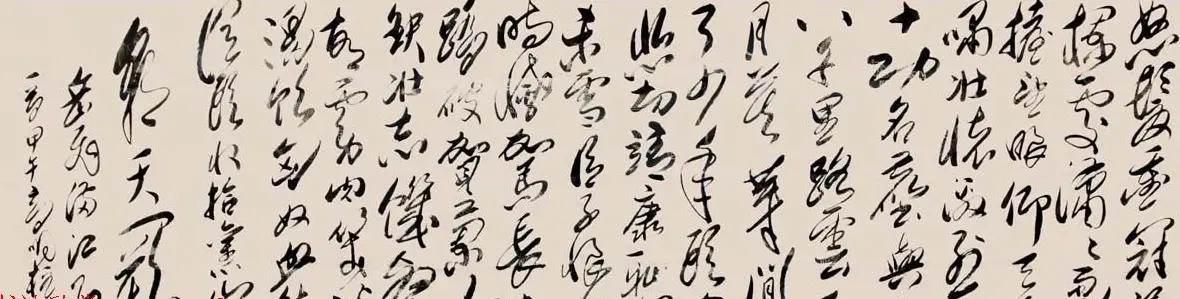 怒髮衝冠
欄處瀟瀟雨
擡望眼仰天
嘯壯懷激烈
十功名塵與
八千里路雲
月莫等閒
了少年頭
悲切靖康恥
未雪臣子恨
時滅駕長
踏破賀蘭
缺壯志飢餐
胡虜肉笑談
渴飲匈奴血
從頭收拾舊
朝天闕
岳飛滿江紅
甲午